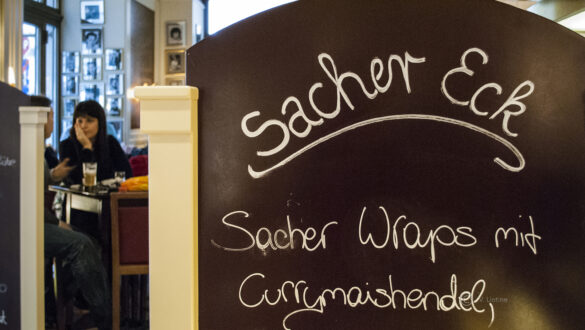 Sacher Eck
Sacher Wraps mit
Currymaishendel,